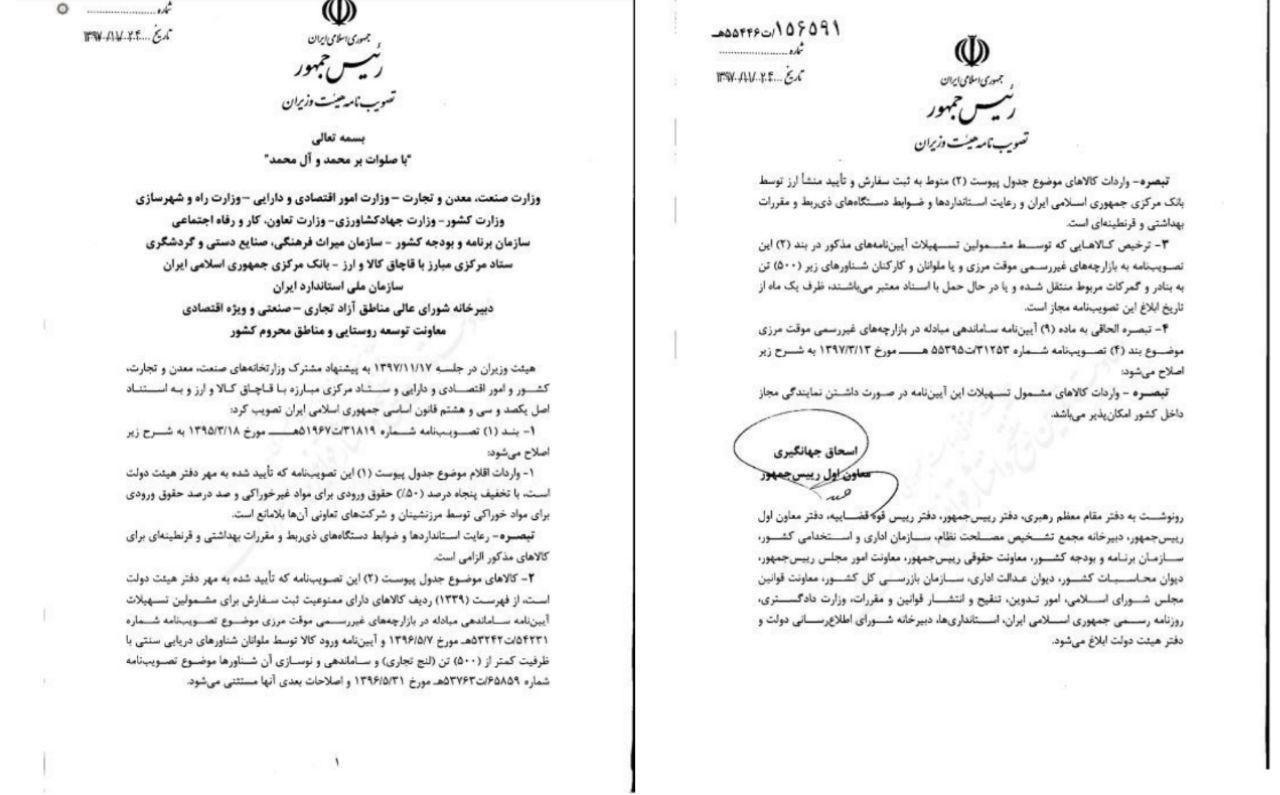 شماره
تاریخ ۱۳۹۷/۱۱/۲۴
جمهوری اسلامی ایران
رئیس جمهور
تصویب نامه هیئت وزیران
بسمه تعالی
"با صلوات بر محمد و آل محمد"
وزارت صنعت، معدن و تجارت – وزارت امور اقتصادی و دارایی – وزارت راه و شهرسازی
وزارت کشور – وزارت جهادکشاورزی – وزارت تعاون، کار و رفاه اجتماعی
سازمان برنامه و بودجه کشور – سازمان میراث فرهنگی، صنایع دستی و گردشگری
ستاد مرکزی مبارز با قاچاق کالا و ارز – بانک مرکزی جمهوری اسلامی ایران
سازمان ملی استاندارد ایران
دبیرخانه شورای عالی مناطق آزاد تجاری – صنعتی و ویژه اقتصادی
معاونت توسعه روستایی و مناطق محروم کشور
هیئت وزیران در جلسه ۱۳۹۷/۱۱/۱۷ به پیشنهاد مشترک وزارتخانه‌های صنعت، معدن و تجارت،
کشور و امور اقتصادی و دارایی و ستاد مرکزی مبارزه با قاچاق کالا و ارز و به استناد
اصل یکصد و سی و هشتم قانون اساسی جمهوری اسلامی ایران تصویب کرد:
۱- بند (۱) تصویب‌نامه شماره ۳۱۸۱۹/ت۵۱۹۶۷هـ مورخ ۱۳۹۵/۳/۱۸ به شرح زیر
اصلاح می‌شود:
۱- واردات اقلام موضوع جدول پیوست (۱) این تصویب‌نامه که تأیید شده به مهر دفتر هیئت دولت
است، با تخفیف پنجاه درصد (۵۰٪) حقوق ورودی برای مواد غیرخوراکی و صد درصد حقوق ورودی
برای مواد خوراکی توسط مرزنشینان و شرکت‌های تعاونی آن‌ها بلامانع است.
تبصره- رعایت استانداردها و ضوابط دستگاه‌های ذی‌ربط و مقررات بهداشتی و قرنطینه‌ای برای
کالاهای مذکور الزامی است.
۲- کالاهای موضوع جدول پیوست (۲) این تصویب‌نامه که تأیید شده به مهر دفتر هیئت دولت
است، از فهرست (۱۳۳۹) ردیف کالاهای دارای ممنوعیت ثبت سفارش برای مشمولین تسهیلات
آیین‌نامه ساماندهی مبادله در بازارچه‌های غیررسمی موقت مرزی موضوع تصویب‌نامه شماره
۵۴۲۳۱/ت۵۳۲۴۲هـ مورخ ۱۳۹۶/۵/۷ و آیین‌نامه ورود کالا توسط ملوانان شناورهای دریایی سنتی با
ظرفیت کمتر از (۵۰۰) تن (لنج تجاری) و ساماندهی و نوسازی آن شناورها موضوع تصویب‌نامه
شماره ۶۵۸۵۹/ت۵۳۷۶۳هـ مورخ ۱۳۹۶/۵/۳۱ و اصلاحات بعدی آنها مستثنی می‌شود.
۱
۱۵۶۵۹۱/ت۵۵۴۴۶هـ
شماره
تاریخ ۱۳۹۷/۱۱/۲۴
جمهوری اسلامی ایران
رئیس جمهور
تصویب نامه هیئت وزیران
تبصره- واردات کالاهای موضوع جدول پیوست (۲) منوط به ثبت سفارش و تأیید منشأ ارز توسط
بانک مرکزی جمهوری اسلامی ایران و رعایت استانداردها و ضوابط دستگاه‌های ذی‌ربط و مقررات
بهداشتی و قرنطینه‌ای است.
۳- ترخیص کالاهایی که توسط مشمولین تسهیلات آیین‌نامه‌های مذکور در بند (۲) این
تصویب‌نامه به بازارچه‌های غیررسمی موقت مرزی و یا ملوانان و کارکنان شناورهای زیر (۵۰۰) تن
به بنادر و گمرکات مربوط منتقل شده و یا در حال حمل با اسناد معتبر می‌باشند، ظرف یک ماه از
تاریخ ابلاغ این تصویب‌نامه مجاز است.
۴- تبصره الحاقی به ماده (۹) آیین‌نامه ساماندهی مبادله در بازارچه‌های غیررسمی موقت مرزی
موضوع بند (۴) تصویب‌نامه شماره ۳۱۲۵۳/ت۵۵۳۹۵ هـ مورخ ۱۳۹۷/۳/۱۳ به شرح زیر
اصلاح می‌شود:
تبصره – واردات کالاهای مشمول تسهیلات این آیین‌نامه در صورت داشتن نمایندگی مجاز
داخل کشور امکان‌پذیر می‌باشد.
اسحاق جهانگیری
معاون اول رییس‌جمهور
رونوشت به دفتر مقام معظم رهبری، دفتر رییس‌جمهور، دفتر رییس قوه قضاییه، دفتر معاون اول
رییس‌جمهور، دبیرخانه مجمع تشخیص مصلحت نظام، سازمان اداری و استخدامی کشور،
سازمان برنامه و بودجه کشور، معاونت حقوقی رییس‌جمهور، معاونت امور مجلس رییس‌جمهور،
دیوان محاسبات کشور، دیوان عدالت اداری، سازمان بازرسی کل کشور، معاونت قوانین
مجلس شورای اسلامی، امور تدوین، تنقیح و انتشار قوانین و مقررات، وزارت دادگستری،
روزنامه رسمی جمهوری اسلامی ایران، استانداری‌ها، دبیرخانه شورای اطلاع‌رسانی دولت و
دفتر هیئت دولت ابلاغ می‌شود.